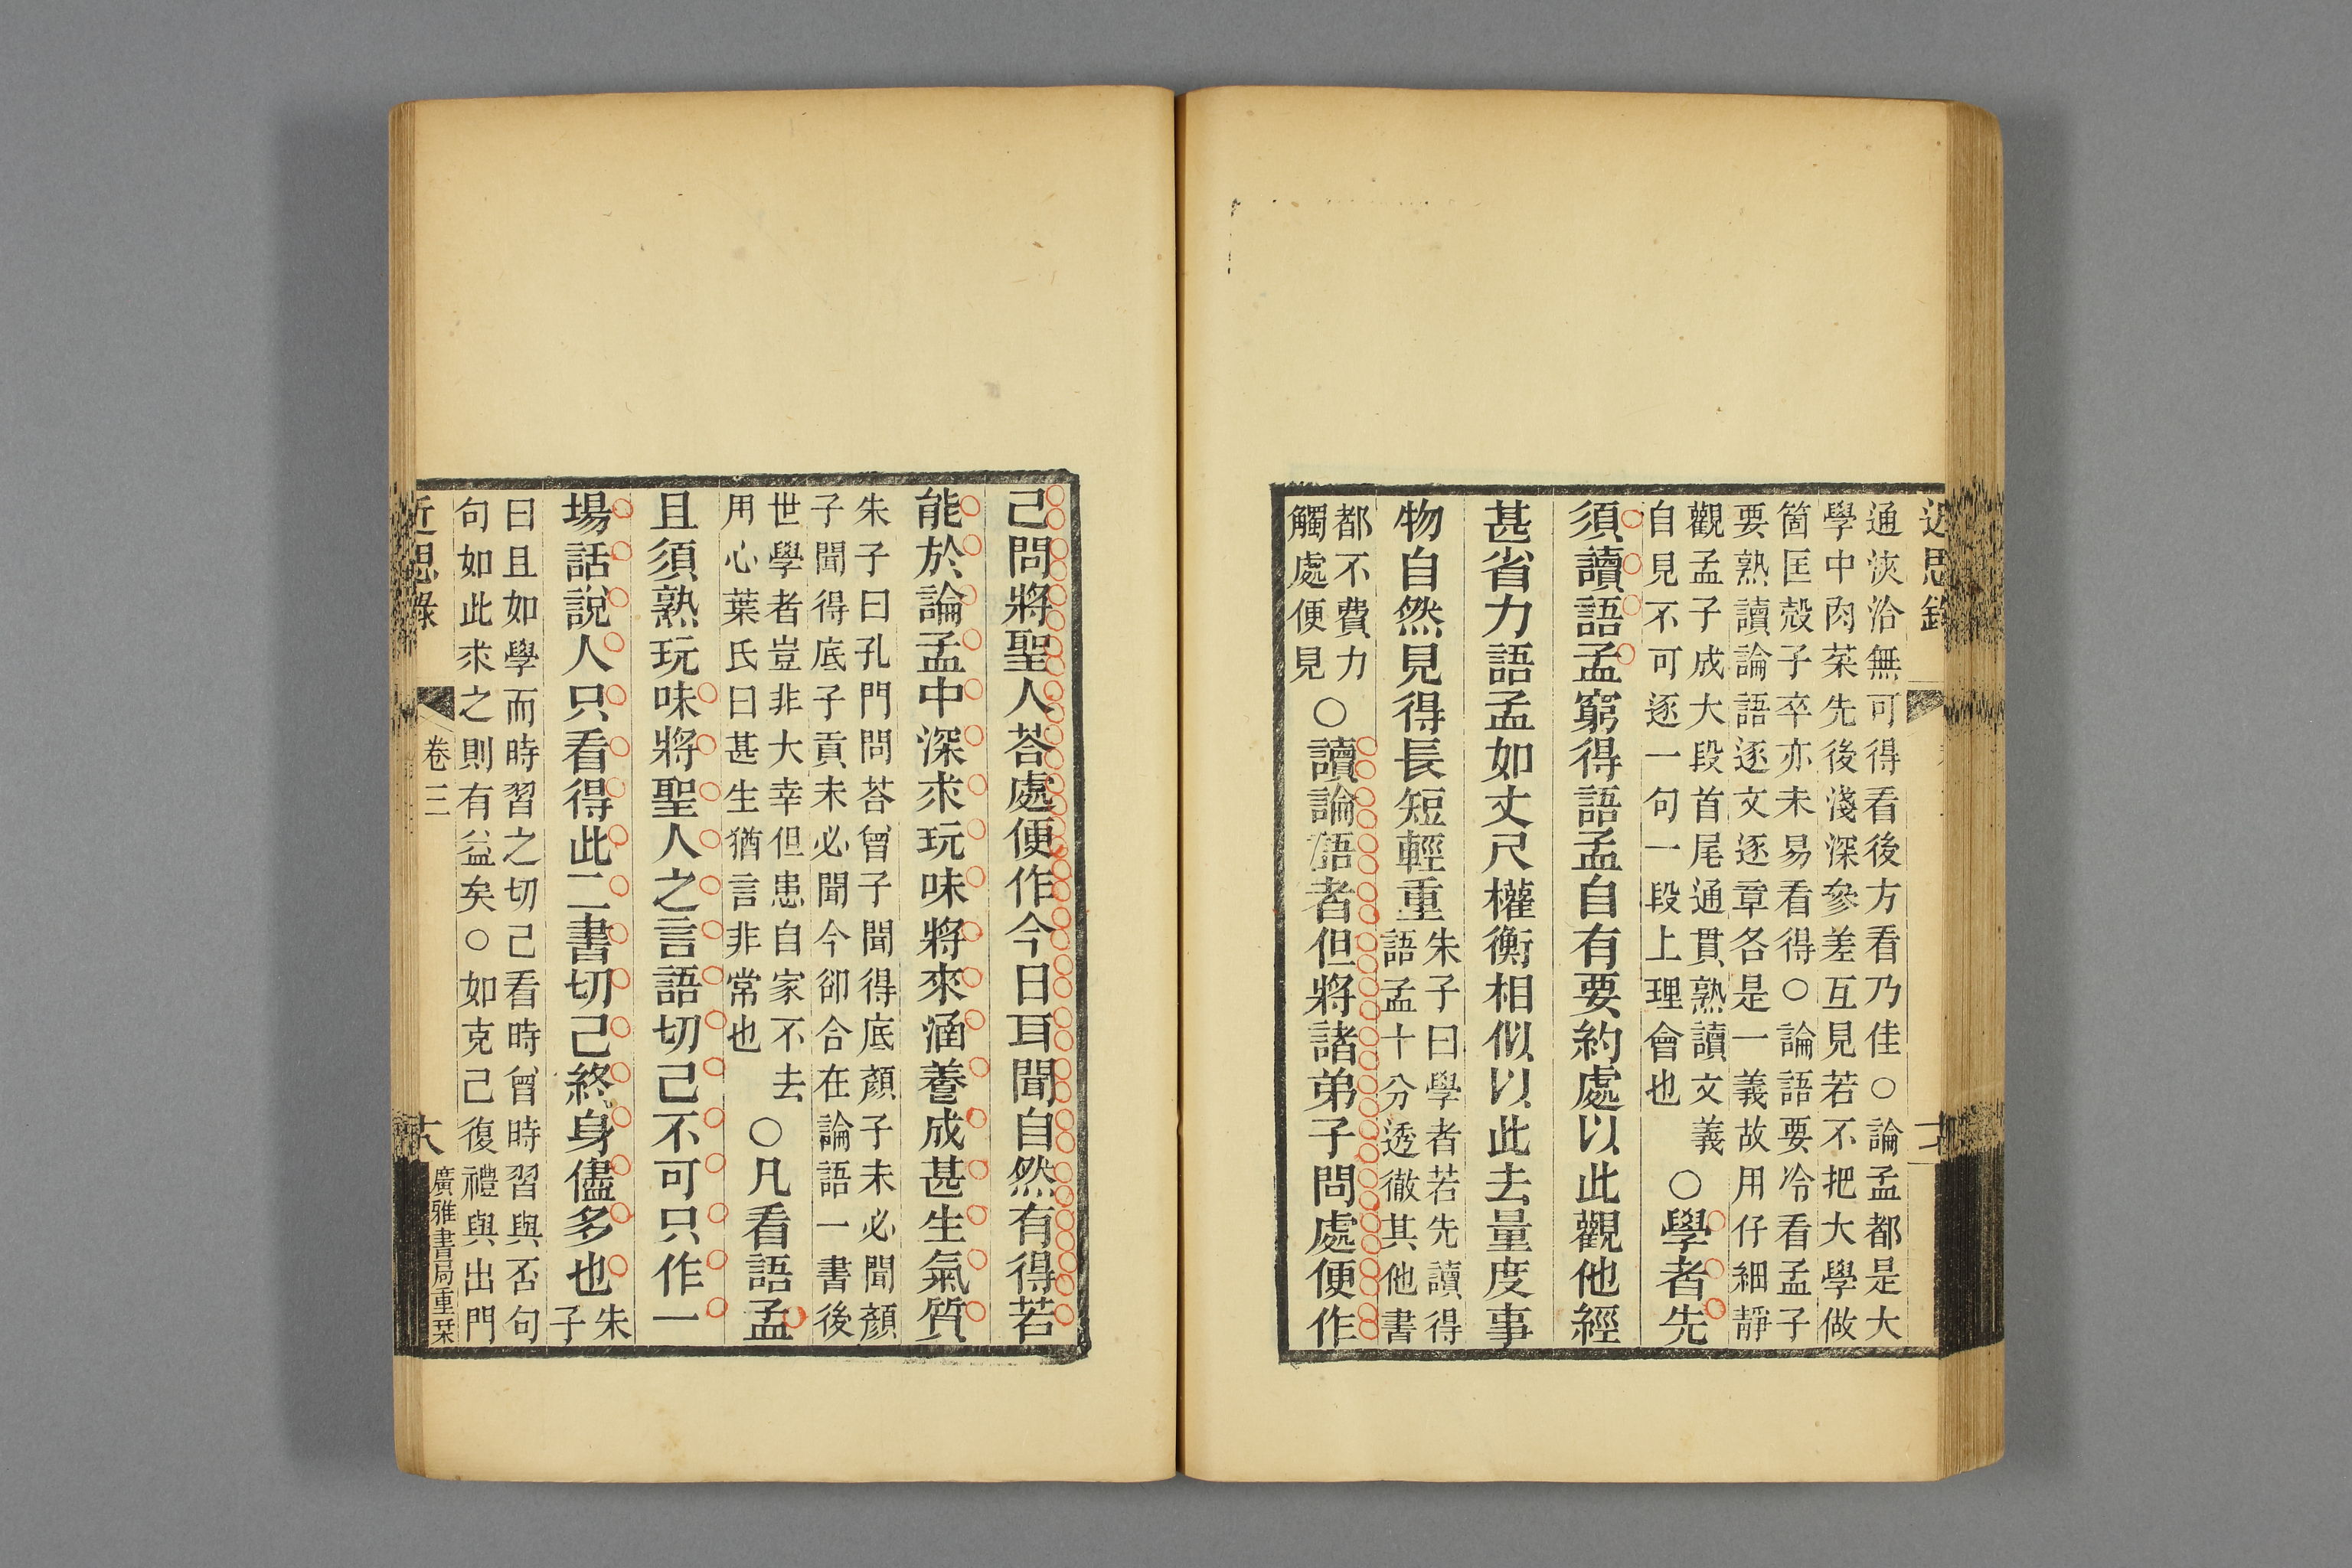 通浹洽無可得看後方看乃佳○論孟都是大
學中肉菜先後淺深參差互見若不把大學做
箇匡殼子卒亦未易看得○論語要冷看孟子
要熟讀論語逐文逐章各是一義故用仔細靜
觀孟子成大段首尾通貫熟讀文義
自見不可逐一句一段上理會也
○學者先
須讀語孟窮得語孟自有要約處以此觀他經
甚省力語孟如丈尺權衡相似以此去量度事
物自然見得長短輕重
朱子曰學者若先讀得
語孟十分透徹其他書
都不費力
觸處便見
○讀論語者但將諸弟子問處便作
己問將聖人荅處便作今日耳聞自然有得若
能於論孟中深求玩味將來涵養成甚生氣質
朱子曰孔門問荅曾子聞得底顏子未必聞顏
子聞得底子貢未必聞今卻合在論語一書後
世學者豈非大幸但患自家不去
用心葉氏曰甚生猶言非常也
○凡看語孟
且須熟玩味將聖人之言語切己不可只作一
場話說人只看得此二書切己終身儘多也
朱
子
曰且如學而時習之切己看時曾時習與否句
句如此求之則有益矣○如克己復禮與出門
近思錄
卷三
十六
廣雅書局重栞